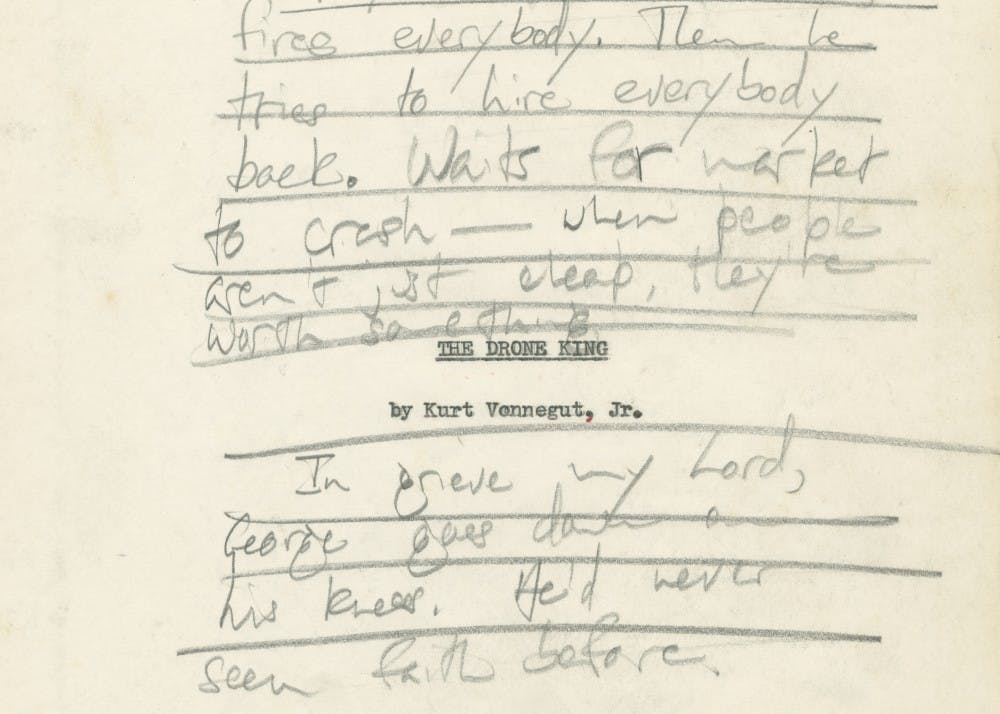 fires everybody. Then he
tries to hire everybody
back. Waits for market
to crash — when people
aren't just cheap, they're
worth something.
THE DRONE KING
by Kurt Vonnegut, Jr.
In grieve my Lord,
George goes down on
his knees. He'd never
seen faith before.